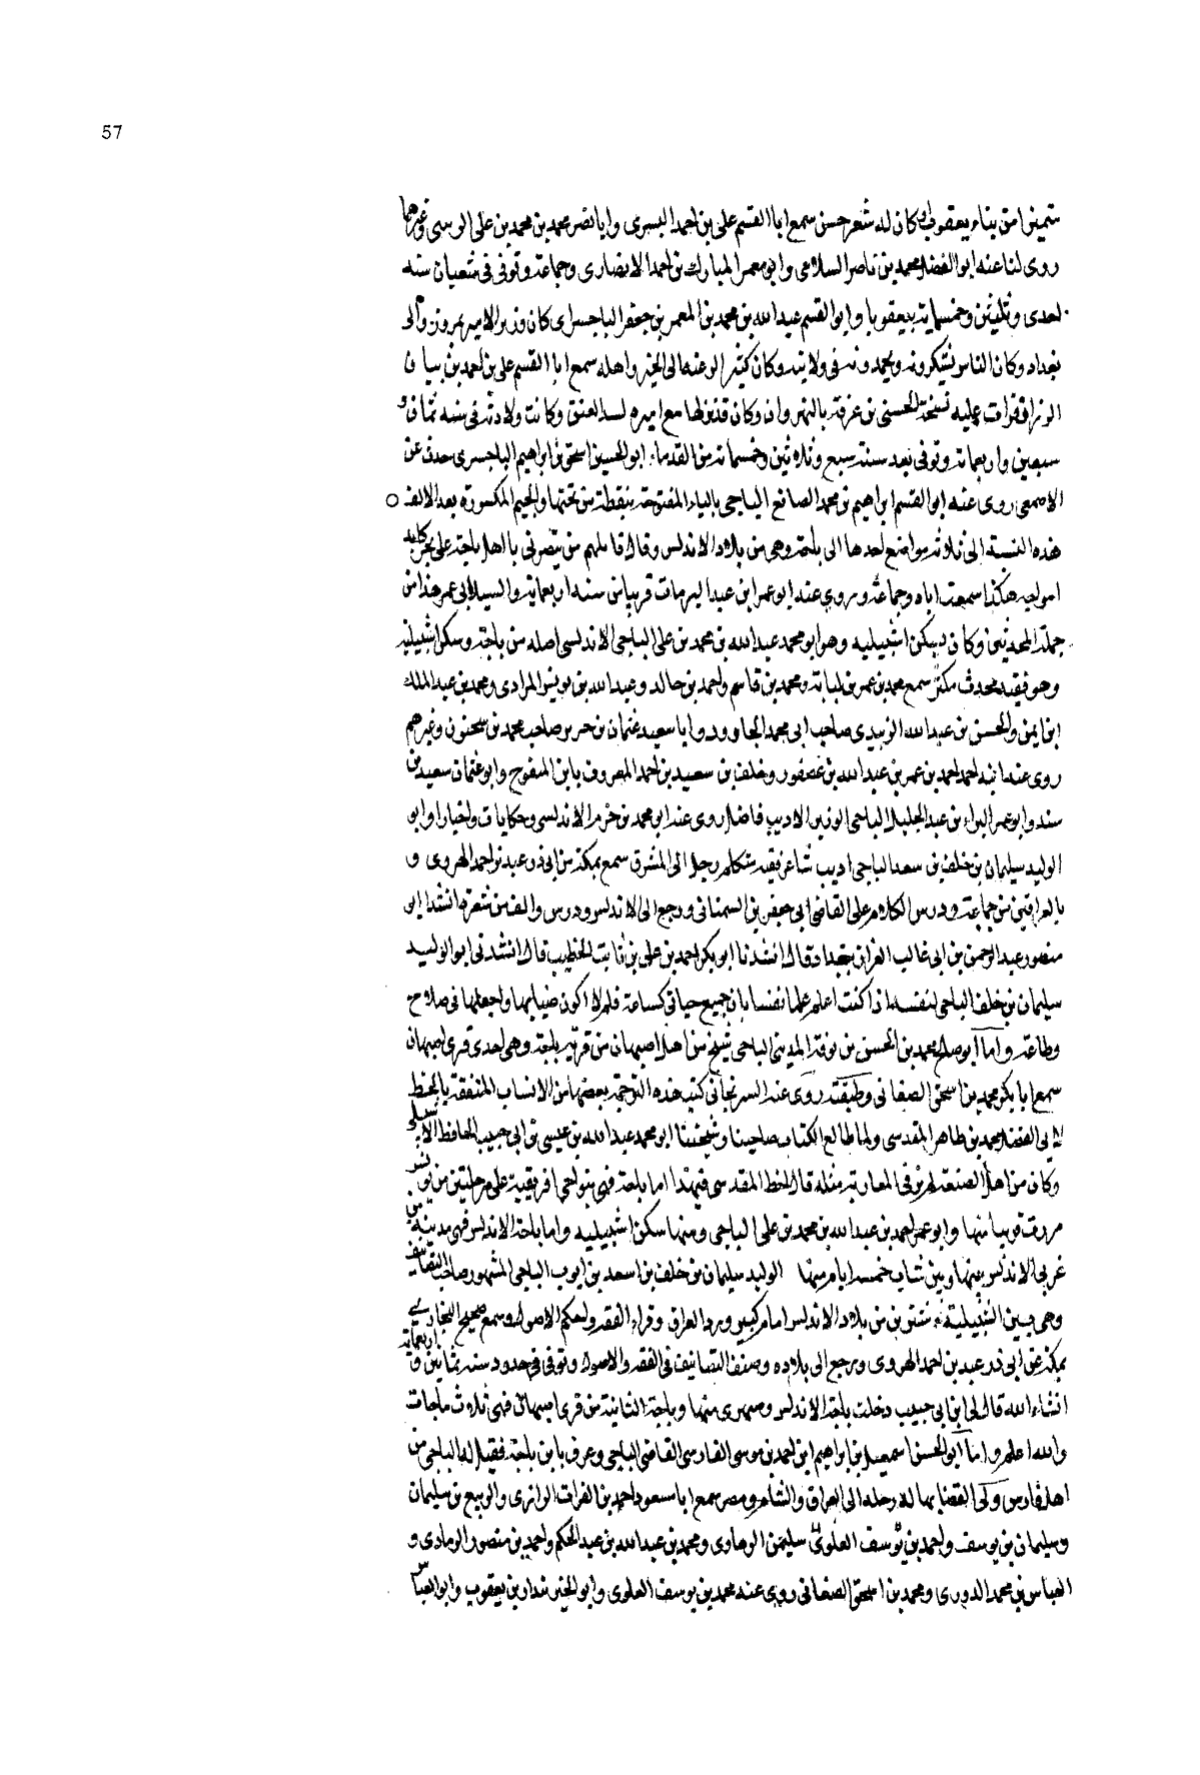 57
متميزا من بناء يعقوبا وكان له شعر حسن سمع ابا القسم علي بن احمد البسرى وابا نصر محمد بن محمد بن علي الزينبي وغيرهما
روى لنا عنه ابو الفضل محمد بن ناصر السلامى وابو معمر المبارك بن احمد الانصارى وجماعة وتوفى فى شعبان سنه
احدى وثلثين وخمسماية ببعقوبا وابو القسم عبد الله بن محمد بن المعمر بن جعفر الباجسراى كان وزير الامير بهروز والى
بغداد وكان الناس يشكرونه ويحمدونه فى ولايته وكان كثير الرغبه الى الخير واهله سمع ابا القسم علي بن احمد بن بيان
الرزاز قرات عليه نسخة الحسن بن عرفة بالنهروان وكان قد نزلها مع اميره لسد العتق وكانت ولادته فى سنه ثمان و
سبعين واربعماية وتوفى بعد سنة سبع وثلاثين وخمسماية من القدماء ابو الحسين اسحق بن ابراهيم الباجسرى حدث عن
الاصمعى روى عنه ابو القسم ابراهيم بن محمد الصائغ الباجى بالباء المفتوحة بنقطة من تحتها والجيم المكسورة بعد الالف ○
هذه النسبة الى ثلاثة مواضع احدها الى باجة وهى من بلاد الاندلس وقال قايلهم من يبصرنى يا اهل باجة على
سمعت اباه وجماعة وروى عنه ابو عمر ابن عبد البر مات قريبا من سنه اربعماية وابو عمر هذا من
جملة المحدثين وكان يسكن اشبيليه وهو ابو محمد عبد الله بن محمد بن علي الباجى الاندلسى اصله من باجة وسكن اشبيلية
وهو فقيه محدث مكثر سمع محمد بن عمر بن لبابة ومحمد بن قاسم واحمد بن خالد وعبد الله بن يونس المرادى ومحمد بن عبد الملك
ابن ايمن والحسن بن عبد الله الزبيدى صاحب ابى محمد الجاورود وابا سعيد عثمان بن جرير صاحب محمد بن سحنون وغيرهم
روى عنه ابنه احمد احمد بن عمر بن عبد الله بن عصفور وخلف بن سعيد بن احمد المعروف بابن المنفوخ وابو عثمان سعيد بن
سند وابو عمر البراء بن عبد الجليل الباجى الوزير الاديب فاضل روى عنه ابو محمد بن حزم الاندلسى حكايات واخبارا وابو
الوليد سليمان بن خلف بن سعد الباجى اديب شاعر فقيه متكلم رحل الى المشرق سمع بمكة من ابى ذر عبد بن احمد الهروى و
بالعراقين من جماعة ودرس الكلام على القاضى ابى جعفر بن السمنانى ورجع الى الاندلس ودرس والف من شعره انشدنا ابو
منصور عبد الرحمن بن ابى غالب القزاز ببغداد قال انشدنا ابو بكر احمد بن علي بن ثابت الخطيب قال انشدنى ابو الوليد
سليمان بن خلف الباجى لنفسه اذا كنت اعلم علما نفسا بان جميع حياتى كساعة فلم لا اكون ضنينا بها واجعلها فى صلاح
وطاعة واما ابو صالح محمد بن الحسن بن بوقة المدينى الباجى شيخ من اهل اصبهان من قرية باجة وهى احدى قرى اصبهان
سمع ابا بكر محمد بن اسحق الصغانى وطبقته روى عنه السرنجانى كتب هذه الترجمة بعضها من الانساب المتفقة بالخط
لابى الفضل محمد بن طاهر المقدسى ولما طالع الكتاب صاحبنا وشيخنا ابو محمد عبد الله بن عيسى بن ابى حبيب الحافظ
وكان من اهل الصنعة لم نر فى المغاربة مثله قال اخطا المقدسى فى هذا اما باجة فهى بنواحى افريقية على مرحلتين من تونس
مررت قريبا منها وابو عمر احمد بن عبد الله بن محمد بن علي الباجى ومنها سكن اشبيليه واما باجة الاندلس فهى مدينة من
غربى الاندلس بينها وبين شلب خمسه ايام منها الوليد سليمان بن خلف بن اسعد بن ايوب الباجى المشهور صاحب التصانيف
وهى وبين اشبيلية شنترين من بلاد الاندلس امام كبير ورد العراق وقراء الفقه واحكم الاصول وسمع صحيح البخارى
بمكة عن ابى ذر عبد بن احمد الهروى ورجع الى بلاده وصنف التصانيف فى الفقه والاصول وتوفى فى حدود سنه ثمانين واربعماية
انشاء الله قال لى ابن ابى حبيب دخلت باجة الاندلس وباجة الثانية من قرى اصبهان فهى ثلاث باجات
والله اعلم واما ابو الحسن اسمعيل بن ابراهيم ابن احمد بن موسى الفارسى القاضى الباجى وعرف بابن باجة فقيل له الباجى من
اهل فارس ولى القضا بها له رحله الى العراق والشام ومصر سمع ابا مسعود احمد بن الفرات الرازى والربيع بن سليمان
وسليمان بن يوسف واحمد بن يوسف العلوى سليمن الرهاوى ومحمد بن عبد الله بن عبد الحكم واحمد بن منصور الرمادى و
العباس بن محمد الدورى ومحمد بن اسحق الصغانى روى عنه محمد بن يوسف العلوى وابو الخير بندار بن يعقوب وابو العباس